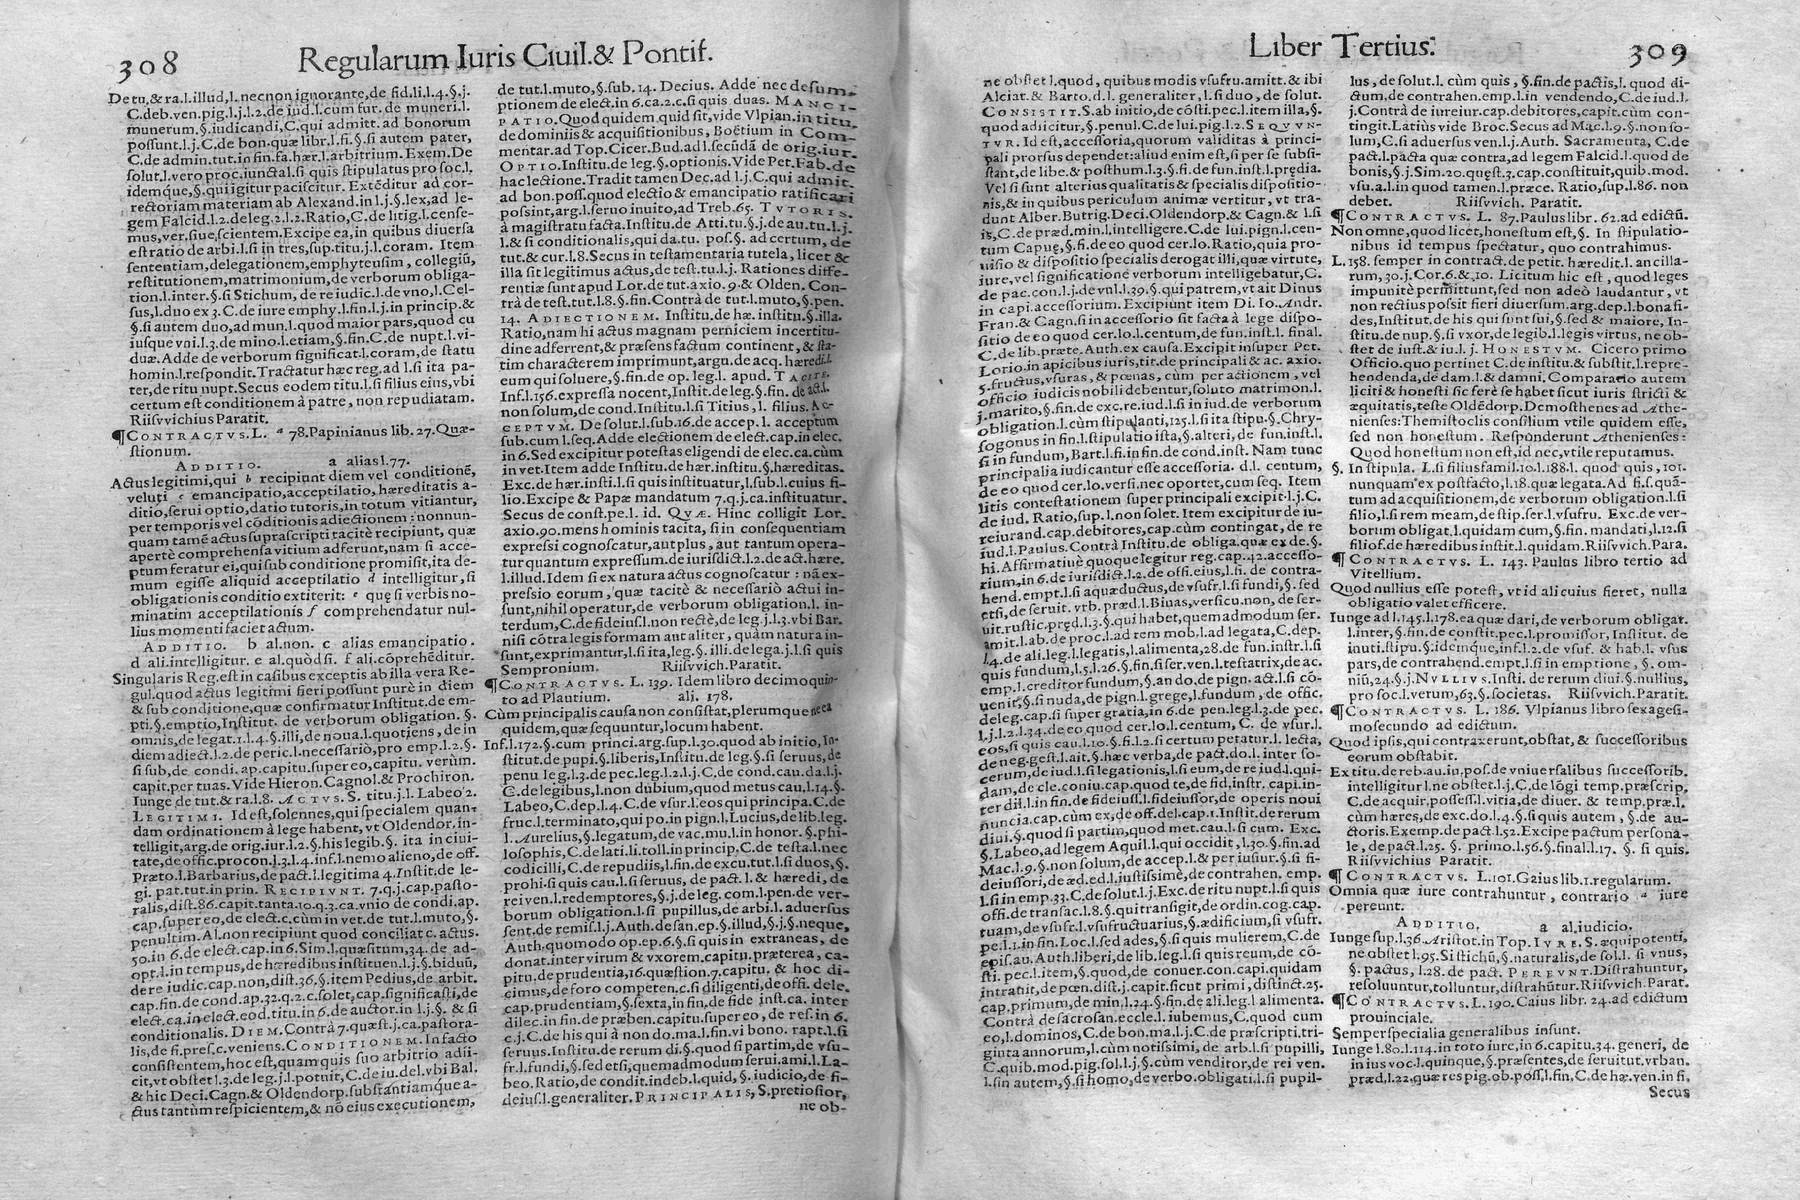 308 Regularum Iuris Ciuil.& Pontif.
De tu,& ra.l.illud,l.necnon ignorante,de fid.li.l.4.§.j.
C.deb.ven.pig.l.j.l.2.de iud.l.cum fur. de muneri.l.
munerum.§.iudicandi,C.qui admitt.ad bonorum
possunt.l.j.C.de bon.quæ libr.l.fi.§.si autem pater,
C.de admin.tut.in fin.fa.hær.l.arbitrium. Exem.De
solut.l.vero proc.iuncta l.si quis stipulatus pro soc.l.
idemque,§.qui igitur paciscitur. Extēditur ad cor-
rectoriam materiam ab Alexand.in l.j.§.lex,ad le-
gem Falcid.l.2.deleg.2.l.2.Ratio,C.de litig.l.cense-
mus,ver.siue,scientem.Excipe ea,in quibus diuersa
est ratio de arbi.l.si in tres,sup.titu.j.l.coram. Item
sententiam,delegationem,emphyteusim, collegiū,
restitutionem,matrimonium,de verborum obliga-
tion.l.inter.§.si Stichum,de re iudic.l.de vno,l.Cel-
sus,l.duo ex 3.C.de iure emphy.l.fin.l.j.in princip.&
§.si autem duo,ad mun.l.quod maior pars,quod cu
iusque vni.l.3.de mino.l.etiam,§.fin.C.de nupt.l.vi-
duæ.Adde de verborum significat.l.coram,de statu
homin.l.respondit.Tractatur hæc reg.ad l.si ita pa-
ter,de ritu nupt.Secus eodem titu.l.si filius eius,vbi
certum est conditionem à patre, non repudiatam.
Riisvvichius Paratit.
¶CONTRACTVS.L. a 78.Papinianus lib.27.Quæ-
stionum.
ADDITIO. a alias l.77.
Actus legitimi,qui b recipiunt diem vel conditionē,
veluti c emancipatio,acceptilatio,hæreditatis a-
ditio,serui optio,datio tutoris,in totum vitiantur,
per temporis vel cōditionis adiectionem:nonnun-
quam tamē actus suprascripti tacitè recipiunt, quæ
apertè comprehensa vitium adferunt,nam si acce-
ptum feratur ei,qui sub conditione promisit,ita de-
mum egisse aliquid acceptilatio d intelligitur,si
obligationis conditio extiterit: e quę si verbis no-
minatim acceptilationis f comprehendatur nul-
lius momenti faciet actum.
ADDITIO. b al.non. c alias emancipatio.
d ali.intelligitur. e al.quòd si. f ali.cōprehēditur.
Singularis Reg.est in casibus exceptis ab illa vera Re-
gul.quod actus legitimi fieri possunt purè in diem
& sub conditione,quæ confirmatur Institut.de em-
pti.§.emptio,Institut. de verborum obligation. §.
omnis,de legat.1.l.4.§.illi,de noua.l.quotiens,de in
diem adiect.l.2.de peric.l.necessariò,pro emp.l.2.§.
si sub,de condi.ap.capitu.super eo,capitu. verùm.
capit.per tuas.Vide Hieron.Cagnol.& Prochiron.
Iunge de tut.& ra.l.8. ACTVS.S. titu.j.l. Labeo 2.
LEGITIMI. Id est,solennes,qui specialem quan-
dam ordinationem à lege habent,vt Oldendor.in-
telligit,arg.de orig.iur.l.2.§.his legib.§. ita in ciui-
tate,de offic.procon.l.3.l.4.inf.l.nemo alieno,de off.
Præto.l.Barbarius,de pact.l.legitima 4.Instit.de le-
gi. pat.tut.in prin. RECIPIVNT. 7.q.j.cap.pasto-
ralis,dist.86.capit.tanta.10.q.3.ca.vnio de condi.ap.
cap.super eo,de elect.c.cùm in vet.de tut.l.muto,§.
penultim.Al.non recipiunt quod conciliat c. actus.
50.in 6.de elect.cap.in 6.Sim.l.quæsitum,34.de ad-
opt.l.in tempus,de hæredibus instituen.l.j.§.biduū,
dere iudic.cap.non,dist.36.§.item Pedius,de arbit.
cap.fin.de cond.ap.32.q.2.c.solet,cap.significasti,de
elect.ca.in elect.eod.titu.in 6.de auctor.in l.j.§. & si
conditionalis. DIEM.Contrà 7.quæst.j.ca.pastora-
lis,de fi.pres.c.veniens.CONDITIONEM.In facto
consistentem,hoc est,quam quis suo arbitrio adii-
cit,vt obstet l.3.de leg.j.l.potuit,C.de iu.del.vbi Bal.
& hic Deci.Cagn.& Oldendorp.substantiamque a-
ctus tantùm respicientem,& nō eius executionem,
de tut.l.muto,§.sub.14. Decius. Adde nec desum-
ptionem de elect.in 6.ca.2.c.si quis duas. MANCI-
PATIO.Quod quidem quid sit,vide Vlpian.in titu.
de dominiis & acquisitionibus, Boëtium in Com-
mentar.ad Top.Cicer.Bud.ad l.secūdā de orig.iur.
OPTIO.Institu.de leg.§.optionis.Vide Pet.Fab.de
hac lectione.Tradit tamen Dec.ad l.j.C.qui admit.
ad bon.poss.quod electio & emancipatio ratificari
possint,arg.l.seruo inuito,ad Treb.65. TVTORIS.
à magistratu facta.Institu.de Atti.tu.§.j.de au.tu.l.j.
l.& si conditionalis,qui da.tu. pos.§. ad certum, de
tut.& cur.l.8.Secus in testamentaria tutela, licet &
illa sit legitimus actus,de test.tu.l.j. Rationes diffe-
rentiæ sunt apud Lor.de tut.axio.9.& Olden. Con-
trà de test.tut.l.8.§.fin.Contrà de tut.l.muto,§.pen.
14. ADIECTIONEM. Institu.de hæ.institu.§.illa.
Ratio,nam hi actus magnam perniciem incertitu-
dine adferrent,& præsens factum continent, & sta-
tim characterem imprimunt,argu.de acq. hæredi.l.
eum qui soluere,§.fin.de op.leg.l. apud. TACITE.
Inf.l.156.expressa nocent,Instit.de leg.§.fin. de act.l.
non solum,de cond.Institu.l.si Titius,l. filius. AC-
CEPTVM. De solut.l.sub.16.de accep.l. acceptum
sub.cum l.seq.Adde electionem de elect.cap.in elec.
in 6.Sed excipitur potestas eligendi de elec.ca.cùm
in vet.Item adde Institu.de hær.institu.§.hæreditas.
Exc.de hær.insti.l.si quis instituatur,l.sub.l.cuius fi-
lio.Excipe & Papæ mandatum 7.q.j.ca.instituatur.
Secus de const.pe.l. id. QVÆ. Hinc colligit Lor.
axio.90.mens hominis tacita, si in consequentiam
expressi cognoscatur,aut plus, aut tantum opera-
tur quantum expressum.de iurisdict.l.2.de act.hære.
l.illud.Idem si ex natura actus cognoscatur : nā ex-
pressio eorum, quæ tacitè & necessariò actui in-
sunt,nihil operatur,de verborum obligation.l. in-
terdum,C.de fideiuss.l.non rectè,de leg.j.l.3.vbi Bar.
nisi cōtra legis formam aut aliter, quàm natura in-
sunt,exprimantur,l.si ita,leg.§. illi.de lega.j.l.si quis
Sempronium. Riisvvich.Paratit.
¶CONTRACTVS. L. 139. Idem libro decimoquin-
to ad Plautium. ali. 178.
Cùm principalis causa non consistat,plerumque nec ea
quidem,quæ sequuntur,locum habent.
Inf.l.172.§.cum princi.arg.sup.l.30.quod ab initio,In-
stitut.de pupi.§.liberis,Institu.de leg.§.si seruus,de
penu leg.l.3.de pec.leg.l.2.l.j.C.de cond.cau.da.l.j.
C.de legibus,l.non dubium,quod metus cau.l.14.§.
Labeo,C.dep.l.4.C.de vsur.l.eos qui principa.C.de
fruc.l.terminato,qui po.in pign.l.Lucius,de lib.leg.
l. Aurelius,§.legatum,de vac.mu.l.in honor. §.phi-
losophis,C.de lati.li.toll.in princip.C.de testa.l.nec
codicilli,C.de repudiis,l.fin.de excu.tut.l.si duos,§.
prohi.si quis cau.l.si seruus, de pact.l.& hæredi, de
rei ven.l.redemptores,§.j.de leg.com.l.pen.de ver-
borum obligation.l.si pupillus,de arbi.l. aduersus
sent.de remiss.l.j.Auth.de san.ep.§.illud,§.j.§.neque,
Auth.quomodo op.ep.6.§.si quis in extraneas, de
donat.inter virum & vxorem.capitu.præterea, ca-
pitu.de prudentia,16.quæstion.7.capitu. & hoc di-
cimus,de foro competen.c.si diligenti,de offi. dele.
cap.prudentiam,§.sexta,in fin.de fide inst.ca. inter
dilec.in fin.de præben.capitu.super eo, de res.in 6.
c.j.C.de his qui à non do.ma.l.fin.vi bono. rapt.l.si
seruus.Institu.de rerum di.§.quod si partim,de vsu-
fr.l.fundi,§.sed etsi,quemadmodum serui.ami.l. La-
beo.Ratio,de condit.indeb.l.quid, §. iudicio,de fi-
deius.l.generaliter.PRINCIPALIS,S.pretiosior,
ne ob-
Liber Tertius. 309
ne obstet l.quod, quibus modis vsufru.amitt.& ibi
Alciat.& Barto.d.l. generaliter, l.si duo, de solut.
CONSISTIT.S.ab initio,de cōsti.pec.l.item illa,§.
quod adiicitur,§.penul.C.de lui.pig.l.2.SEQVVN-
TVR. Id est,accessoria,quorum validitas à princi-
pali prorsus dependet:aliud enim est,si per se subsi-
stant,de libe.& posthum.l.3.§.fi.de fun.inst.l.prędia.
Vel si sunt alterius qualitatis & specialis dispositio-
nis,& in quibus periculum animæ vertitur, vt tra-
dunt Alber.Butrig.Deci.Oldendorp.& Cagn.& l.si
is,C.de præd.min.l.intelligere.C.de lui.pign.l.cen-
tum Capuę,§.fi.de eo quod cer.lo.Ratio,quia pro-
uisio & dispositio specialis derogat illi,quæ virtute,
iure,vel significatione verborum intelligebatur,C.
de pac.con.l.j.de vul.l.39.§.qui patrem,vt ait Dinus
in capi.accessorium. Excipiunt item Di. Io. Andr.
Fran.& Cagn.si in accessorio sit facta à lege dispo-
sitio de eo quod cer.lo.l.centum,de fun.inst.l. final.
C.de lib.præte.Auth.ex causa.Excipit insuper Pet.
Lorio.in apicibus iuris,tit.de principali & ac. axio.
5.fructus,vsuras,& pœnas, cùm per actionem, vel
officio iudicis nobili debentur,soluto matrimon.l.
j.marito,§.fin.de exc.re.iud.l.si in iud.de verborum
obligation.l.cùm stipulanti,125.l.si ita stipu.§.Chry-
sogonus in fin.l.stipulatio ista,§.alteri, de fun.inst.l.
si in fundum, Bart.l.fi.in fin.de cond.inst. Nam tunc
principalia iudicantur esse accessoria. d.l. centum,
de eo quod cer.lo.versi.nec oportet,cum seq. Item
litis contestationem super principali excipit l.j.C.
de iud. Ratio,sup.l.non solet.Item excipitur de iu-
reiurand.cap.debitores,cap.cùm contingat, de re
iud.l.Paulus.Contrà Institu.de obliga.quæ ex de.§.
hi.Affirmatiuè quoque legitur reg.cap.42.accesso-
rium,in 6.de iurisdict.l.2.de offi.eius,l.fi.de contra-
hend.empt.l.si aquæductus,de vsufr.l.si fundi,§.sed
etsi,de seruit. vrb.præd.l.Binas,versicu.non,de ser-
uit.rustic.pręd.l.3.§.qui habet,quemadmodum ser.
amit.l.ab.de proc.l.ad rem mob.l.ad legata,C.dep.
l.4.de ali.leg.l.legatis,l.alimenta,28.de fun.instr.l.si
quis fundum,l.5.l.26.§.fin.si ser.ven.l.testatrix,de ac.
emp.l.creditor fundum,§.an do,de pign.act.l.si cō-
uenit,§.si nuda,de pign.l.grege,l.fundum, de offic.
deleg.cap.si super gratia,in 6.de pen.leg.l.3.de pec.
l.j.l.2.l.34.de eo quod cer.lo.l.centum, C. de vsur.l.
eos,si quis cau.l.10.§.fi.l.2.si certum petatur.l. lecta,
de neg.gest.l.ait.§.hæc verba,de pact.do.l. inter so-
cerum,de iud.l.si legationis,l.si eum,de re iud.l.qui-
dam,de cle.coniu.cap.quod te,de fid,instr. capi.in-
ter dil.l.in fin.de fideiuss.l.fideiussor,de operis noui
nuncia.cap.cùm ex,de off.del.cap.1.Instit.de rerum
diui.§.quod si partim,quod met.cau.l.si cum. Exc.
§.Labeo,ad legem Aquil.l.qui occidit,l.30.§.fin.ad
Mac.l.9.§.non solum,de accep.l.& per iusiur.§.si fi-
deiussori,de æd.ed.l.iustissimè,de contrahen. emp.
l.si in emp.33.C.de solut.l.j.Exc.de ritu nupt.l.si quis
offi.de transac.l.8.§.qui transigit,de ordin.cog.cap.
tuam,de vsufr.l.vsufructuarius,§.ædificium,si vsufr.
pe.l.1.in fin.Loc.l.sed ades,§.si quis mulierem,C.de
epis.au.Auth.liberi,de lib.leg.l.si quis reum,de cō-
sti. pec.l.item,§.quod,de conuer.con.capi.quidam
intrauit,de pœn.dist.j.capit.sicut primi,distinct.25.
cap.primum,de min.l.24.§.fin.de ali.leg.l.alimenta.
Contrà de sacrosan.eccle.l. iubemus, C.quod cum
eo,l.dominos,C.de bon.ma.l.j.C.de præscripti.tri-
ginta annorum,l.cùm notissimi, de arb.l.si pupilli,
C.quib.mod.pig.sol.l.j.§.cùm venditor,de rei ven.
l.sin autem,§.si homo,de verbo.obligati.l.si pupil-
lus, de solut.l. cùm quis, §.fin.de pactis,l. quod di-
ctum,de contrahen.emp.l.in vendendo,C.de iud.l.
j.Contrà de iureiur.cap.debitores,capit.cùm con-
tingit.Latiùs vide Broc.Secus ad Mac.l.9.§.non so-
lum,C.si aduersus ven.l.j.Auth. Sacramenta, C.de
pact.l.pacta quæ contra,ad legem Falcid.l.quod de
bonis,§.j.Sim.20.quęst.3.cap.constituit,quib.mod.
vsu.a.l.in quod tamen.l.præce. Ratio,sup.l.86. non
debet. Riisvvich. Paratit.
¶CONTRACTVS. L. 87.Paulus libr.62.ad edictū.
Non omne,quod licet,honestum est,§. In stipulatio-
nibus id tempus spectatur, quo contrahimus.
L.158. semper in contract.de petit. hæredit.l.ancilla-
rum, 30.j.Cor.6.& 10. Licitum hic est, quod leges
impunitè permittunt,sed non adeò laudantur, vt
non rectius possit fieri diuersum.arg.dep.l.bona fi-
des,Institut.de his qui sunt sui,§.sed & maiore, In-
stitu.de nup.§.si vxor,de legib.l.legis virtus, ne ob-
stet de iust.& iu.l. j. HONESTVM. Cicero primo
Officio.quo pertinet C.de institu.& substit.l.repre-
hendenda,de dam.l.& damni. Comparatio autem
liciti & honesti sic ferè se habet sicut iuris stricti &
æquitatis,teste Oldēdorp.Demosthenes ad Athe-
nienses:Themistoclis consilium vtile quidem esse,
sed non honestum. Responderunt Athenienses:
Quod honestum non est,id nec vtile reputamus.
§. In stipula. L.si filiusfamil.10.l.188.l. quod quis, 101.
nunquam ex postfacto,l.18.quæ legata.Ad fi.s.quā-
tum ad acquisitionem,de verborum obligation.l.si
filio,l.si rem meam,de stip.ser.l.vsufru. Exc.de ver-
borum obligat.l.quidam cum,§.fin. mandati,l.12.si
filiof.de hæredibus instit.l.quidam.Riisvvich.Para.
¶CONTRACTVS. L. 143. Paulus libro tertio ad
Vitellium.
Quod nullius esse potest, vt id alicuius fieret, nulla
obligatio valet efficere.
Iunge ad l.145.l.178.ea quæ dari,de verborum obligat.
l.inter,§.fin.de constit.pec.l.promissor, Institut. de
inuti.stipu.§.idemque,inf.l.2.de vsuf. & hab.l. vsus
pars,de contrahend.empt.l.si in emptione, §. om-
niū,24.§.j.NVLLIVS.Insti.de rerum diui.§.nullius,
pro soc.l.verum,63.§.societas. Riisvvich.Paratit.
¶CONTRACTVS. L. 186. Vlpianus libro sexagesi-
mosecundo ad edictum.
Quod ipsis,qui contraxerunt,obstat, & successoribus
eorum obstabit.
Ex titu.de reb.au.iu.pos.de vniuersalibus successorib.
intelligitur l.ne obstet l.j.C.de lōgi temp.præscrip.
C.de acquir.possess.l.vitia,de diuer. & temp.præ.l.
cùm hæres,de exc.do.l.4.§.si quis autem , §.de au-
ctoris.Exemp.de pact.l.52.Excipe pactum persona-
le, de pact.l.25. §. primo.l.56.§.final.l.17. §. si quis.
Riisvvichius Paratit.
¶CONTRACTVS. L.101.Gaius lib.1.regularum.
Omnia quæ iure contrahuntur, contrario a iure
pereunt.
ADDITIO. a al.iudicio.
Iunge sup.l.36.Aristot.in Top.IVRE.S.æquipotenti,
ne obstet l.95.Si stichū,§.naturalis,de sol.l. si vnus,
§. pactus, l.28.de pact. PEREVNT.Distrahuntur,
resoluuntur,tolluntur,distrahūtur.Riisvvich.Parat.
¶CONTRACTVS.L.190.Caius libr.24.ad edictum
prouinciale.
Semper specialia generalibus insunt.
Iunge l.80.l.114.in toto iure,in 6.capitu.34. generi, de
in ius voc.l.quinque,§.præsentes,de seruitut.vrban.
præd.l.22.quæ res pig.ob.poss.l.fin,C.de hæ.ven.in fi.
Secus